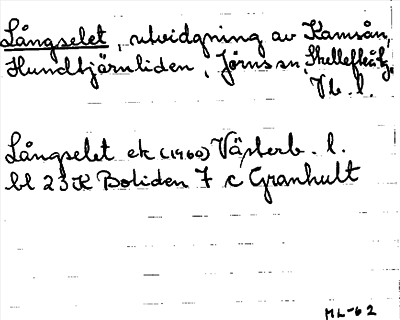 Långselet, utvidgning av Kamsån,
Hundtjärnliden, Jörns sn, Skellefteå tg,
Vb. l.
Långselet ek (1960) Västerb. l.
bl 23 K Boliden 7 c Granhult
ML-62